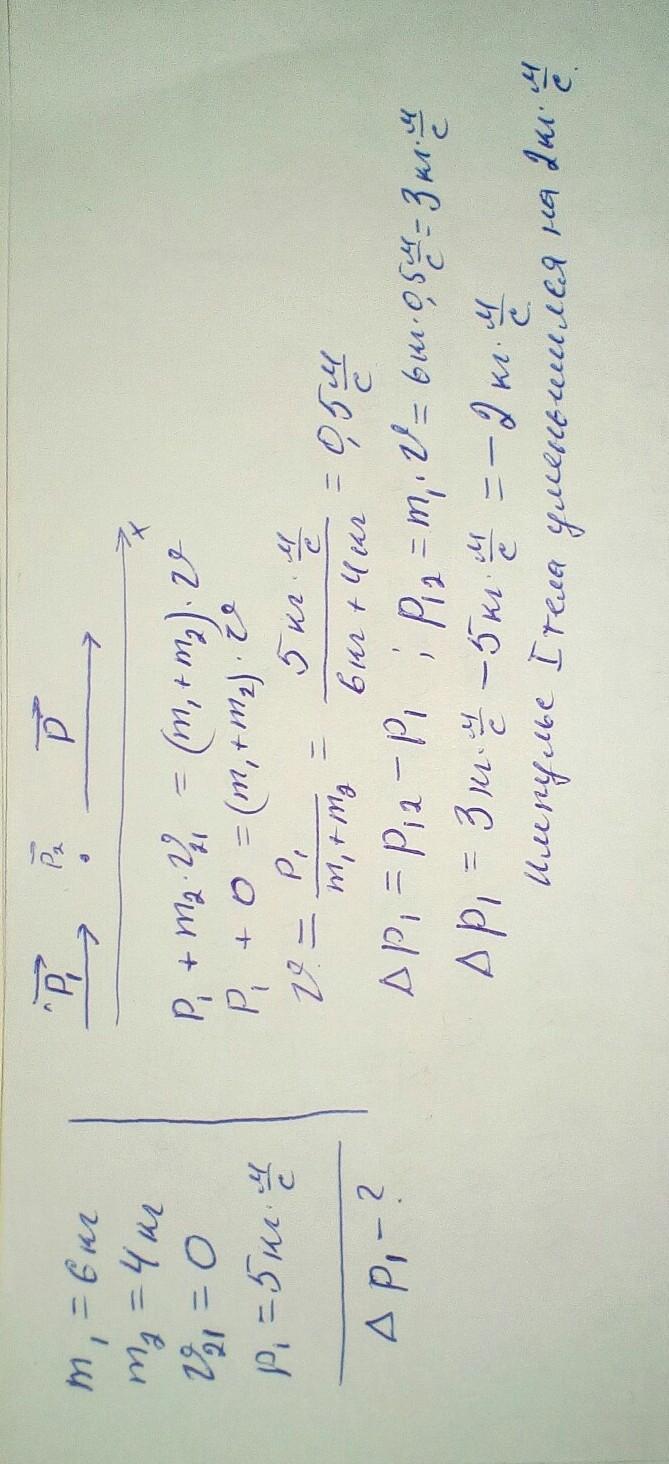 m₁ = 6 кг
m₂ = 4 кг
υ₂₁ = 0
p₁ = 5 кг · м/с
Δp₁ - ?
p⃗₁ p⃗₂ p⃗
x
p₁ + m₂ · υ₂₁ = (m₁ + m₂) · υ
p₁ + 0 = (m₁ + m₂) · υ
υ = p₁/(m₁ + m₂) = (5 кг · м/с)/(6 кг + 4 кг) = 0,5 м/с
Δp₁ = p₁₂ - p₁ ; p₁₂ = m₁ · υ = 6 кг · 0,5 м/с = 3 кг · м/с
Δp₁ = 3 кг · м/с - 5 кг · м/с = -2 кг · м/с
Импульс I тела уменьшился на 2 кг · м/с.